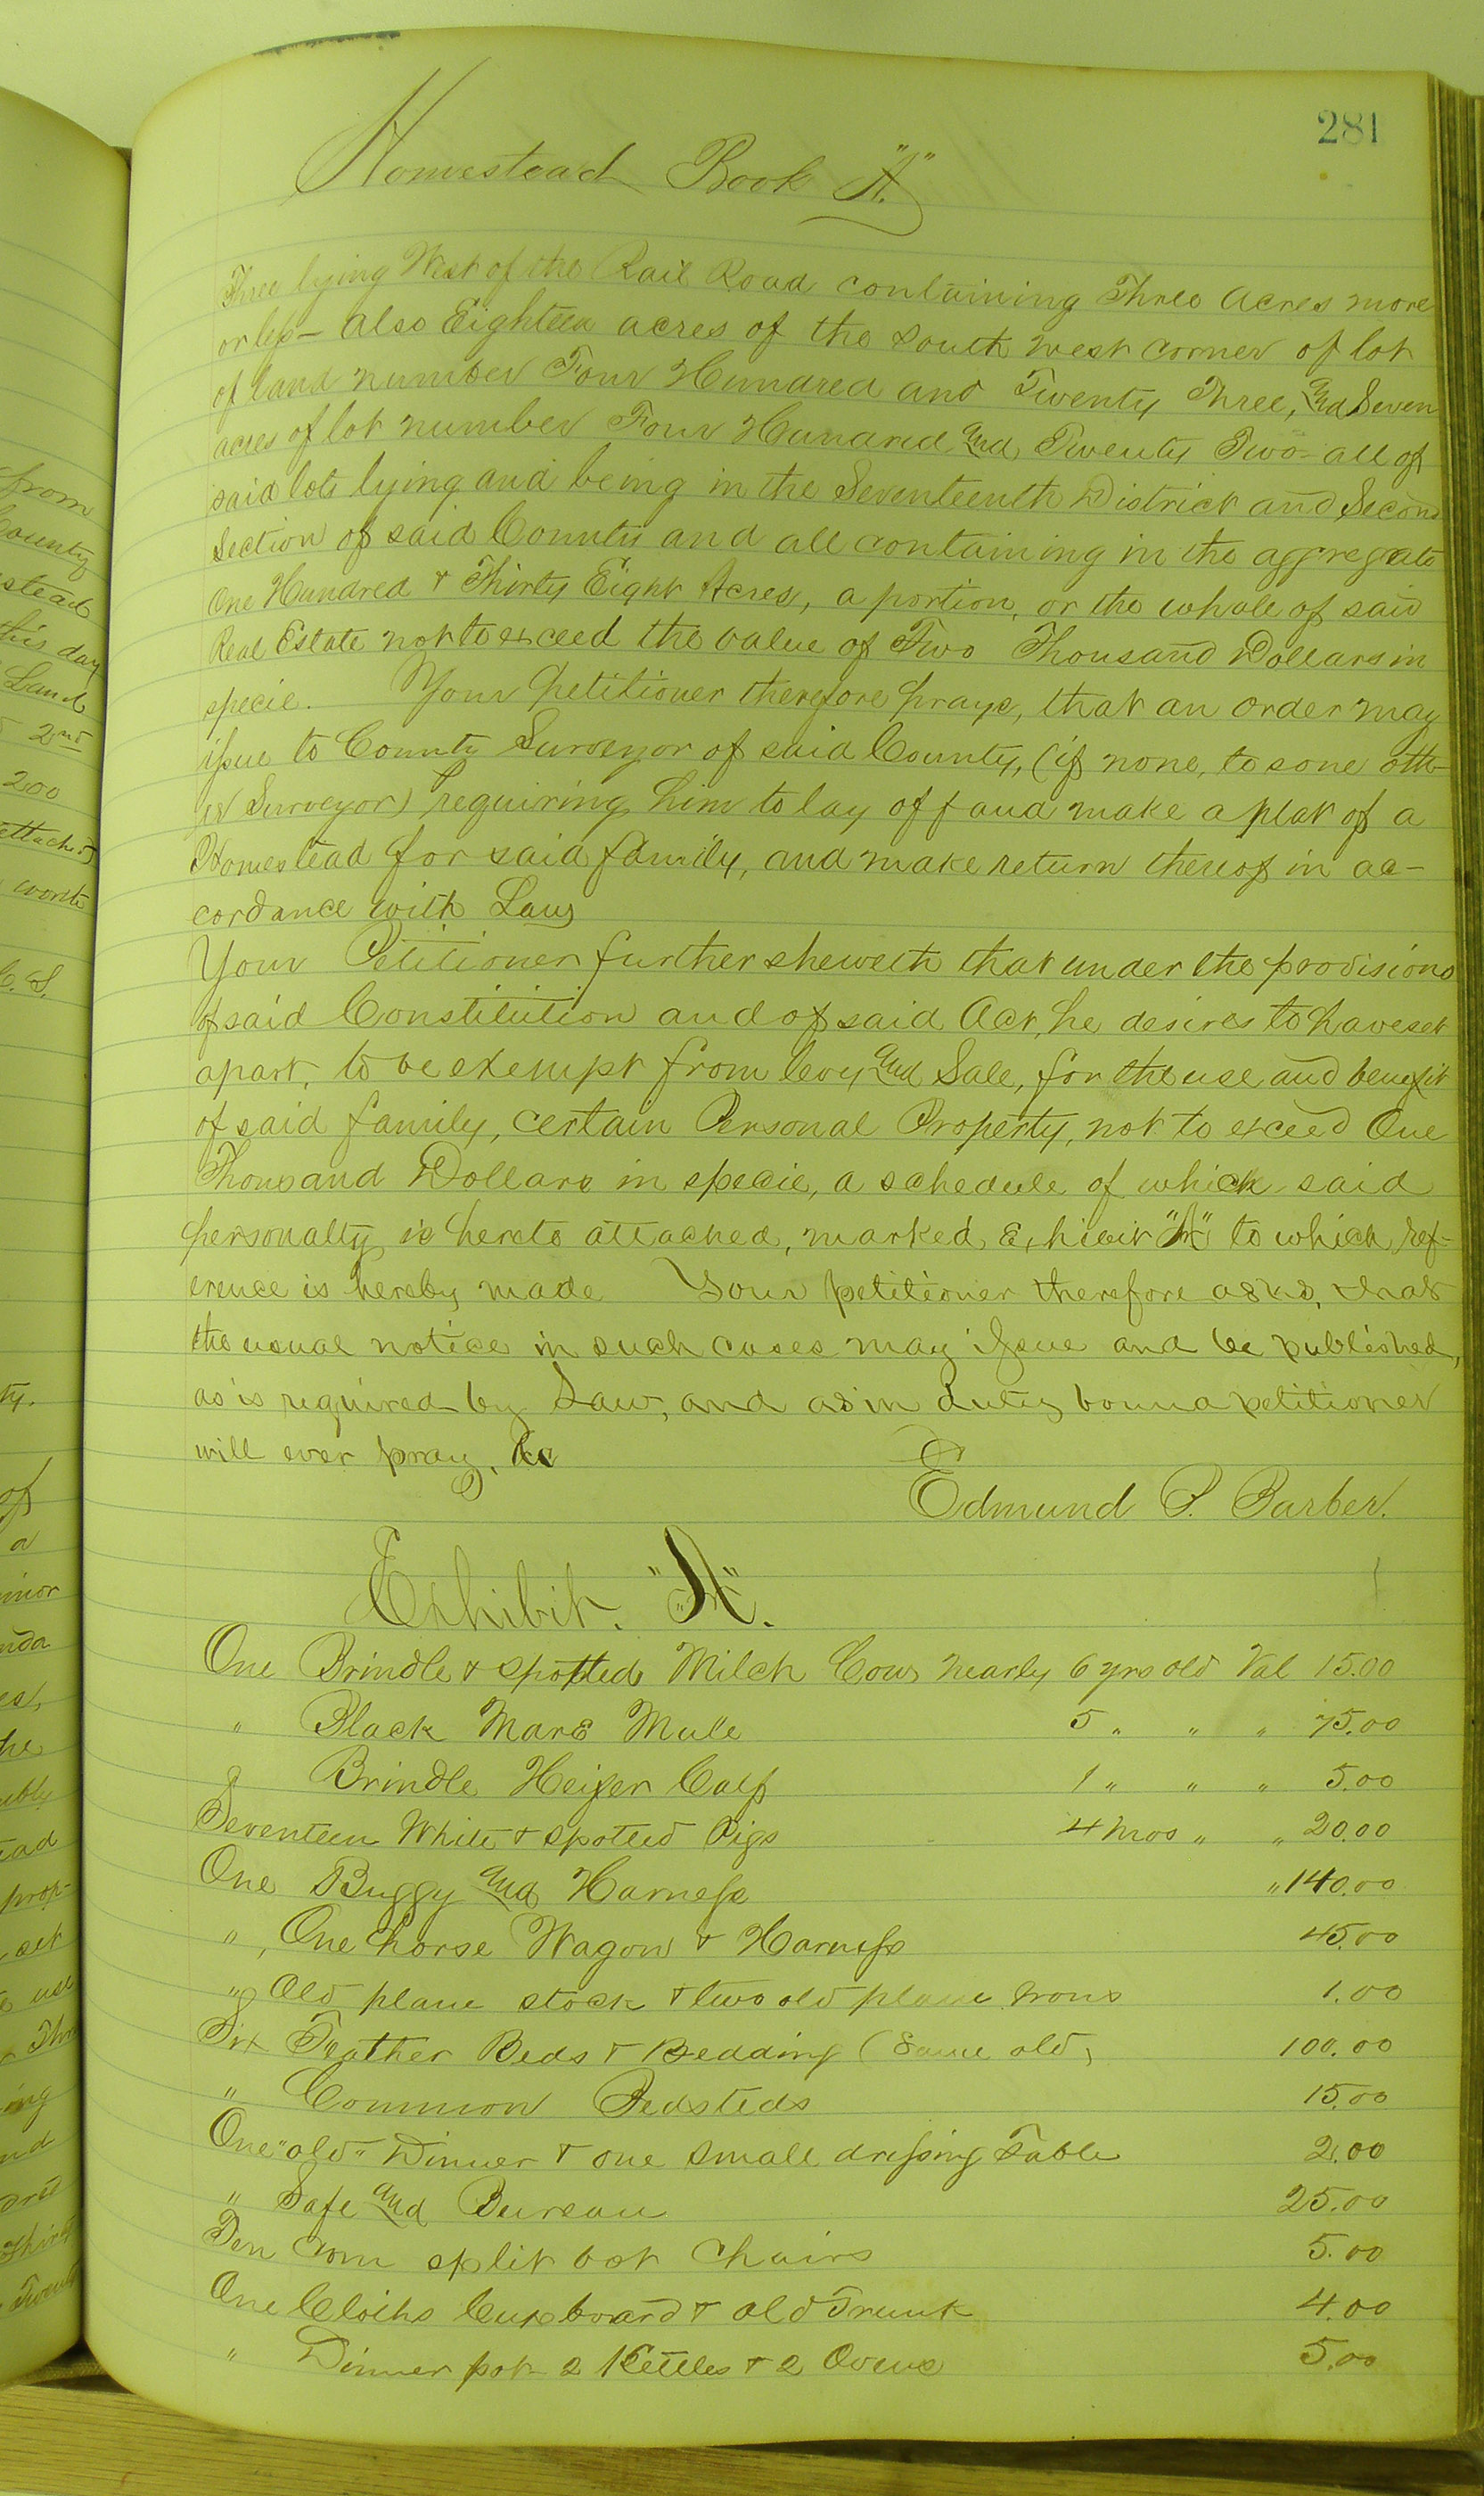 from
County
stead
this day
Land
2nd
200
attached
worth
C. S.
ty.
of
a
minor
nda
es,
he
ably
ead
prop-
set
use
Tho
ing
nd
dred
Third
Twent
281
Homestead Book "A."
Three lying West of the Rail Road containing Three acres more
or less - also Eighteen acres of the South west corner of lot
of land number Four Hundred and Twenty Three, and Seven
acres of lot number Four Hundred and Twenty Two - all of
said lots lying and being in the Seventeenth District and Second
Section of said County and all containing in the aggregate
One Hundred & Thirty Eight Acres, a portion, or the whole of said
Real Estate not to exceed the value of Two Thousand Dollars in
specie. Your petitioner therefore prays, that an order may
issue to County Surveyor of said County, (if none, to some oth-
er Surveyor) requiring him to lay off and make a plat of a
Homestead for said family, and make return thereof in ac-
cordance with Law
Your Petitioner further sheweth that under the provisions
of said Constitution and of said Act, he desires to have set
apart, to be exempt from levy and Sale, for the use and benefit
of said family, certain Personal Property, not to exceed One
Thousand Dollars in specie, a schedule of which said
personalty is hereto attached, marked Exhibit "A" to which ref-
erence is hereby made Your petitioner therefore asks, that
the usual notice in such cases may issue and be published,
as is required by Law, and as in duty bound petitioner
will ever pray, &c
Edmund P. Barber.
Exhibit. "A".
One Brindle & spotted Milch Cow nearly 6 yrs old Val 15.00
" Black Mare Mule 5 " " " 75.00
Brindle Heifer Calf 1 " " " 5.00
Seventeen White & spotted Pigs 4 mos " " 20.00
One Buggy and Harness " 140.00
", One horse Wagon & Harness 45.00
" Old plane stock & two old plane irons 1.00
Six Feather Beds & Bedding (Same old) 100.00
" Common Bedsteds 15.00
One "old" Dinner & one small dressing Table 2.00
" Safe and Bureau 25.00
Ten Com split bot Chairs 5.00
One Cloths Cupboard & old Trunk 4.00
" Dinner pot 2 Kettles & 2 Ovens 5.00